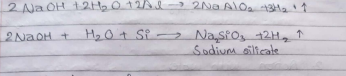 2 NaOH + 2H₂O + 2Al → 2NaAlO₂ + 3H₂ ↑
2NaOH + H₂O + Si → Na₂SiO₃ + 2H₂ ↑
Sodium silicate